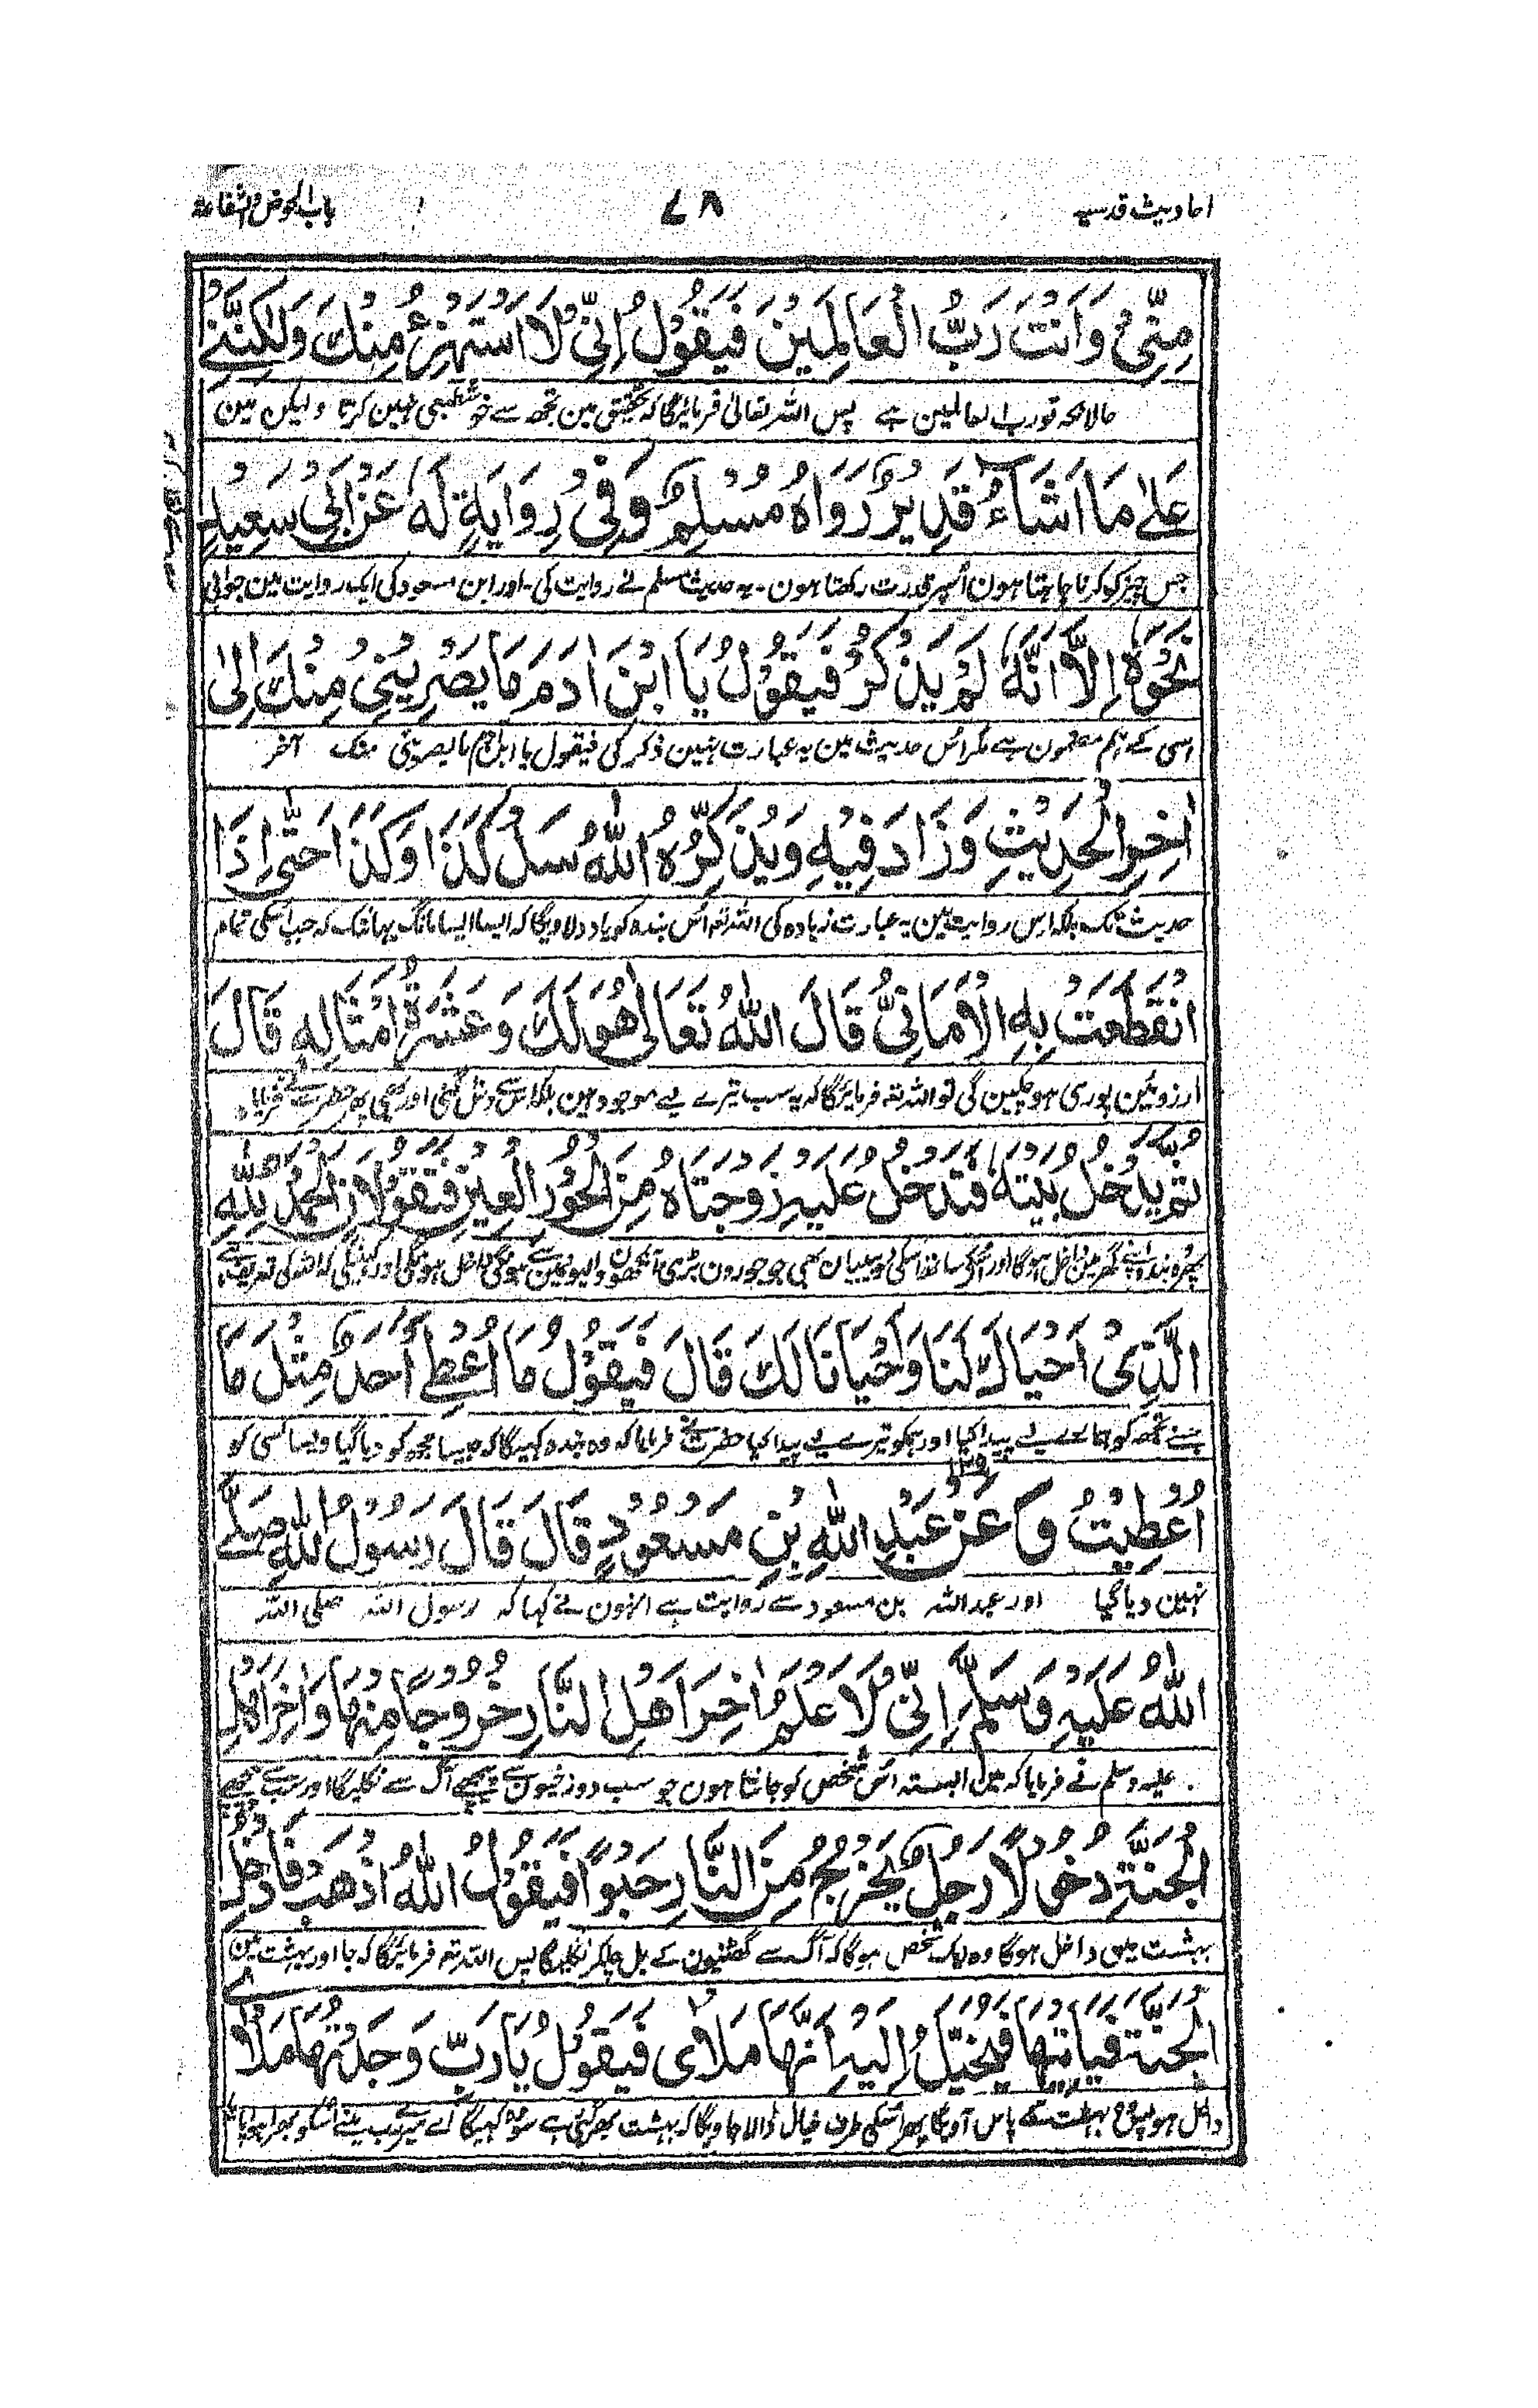 احادیث قدسیہ ۷۸ باب الحوض والشفاعة
مِنِّىْ وَاَنْتَ رَبُّ الْعَالَمِيْنَ فَيَقُوْلُ اِنِّىْ لَا اَسْتَهْزِئُ مِنْكَ وَلٰكِنَّنِىْ
حالانکہ تو رب العالمین ہے پس اللہ تعالیٰ فرمائیگا کہ تحقیق مین تجھ سے خوش طبعی نہین کرتا ولیکن مین
عَلٰى مَا اَشَاءُ قَدِيْرٌ رَوَاهُ مُسْلِمٌ وَفِىْ رِوَايَةٍ لَهٗ عَنْ اَبِىْ سَعِيْدٍ
جس چیز کو کرنا چاہتا ہون اُسپر قدرت رکھتا ہون۔ یہ حدیث مسلم نے روایت کی۔ اور ابن مسعود کی ایک روایت مین جو ابی
نَحْوُهٗ اِلَّا اَنَّهٗ لَمْ يَذْكُرْ فَيَقُوْلُ يَا ابْنَ اٰدَمَ مَا يَصْرِيْنِىْ مِنْكَ اِلٰى
اسی کے ہم مضمون ہے مگر اس حدیث مین یہ عبارت نہین ذکر کی فیقول یا ابن آدم ما یصرینی منک آخر
اٰخِرِ الْحَدِيْثِ وَزَادَ فِيْهِ وَيُذَكِّرُهُ اللّٰهُ سَلْ كَذَا وَكَذَا حَتّٰى اِذَا
حدیث تک بلکہ اِس روایت مین یہ عبارت زیادہ کی اللہ تعہ اس بندہ کو یاد دلاویگا کہ ایسا ایسا مانگ یہانتک کہ جب اسکی تمام
انْقَطَعَتْ بِهِ الْاَمَانِىُّ قَالَ اللّٰهُ تَعَالٰى هُوَ لَكَ وَعَشَرَةُ اَمْثَالِهٖ قَالَ
ارزوئین پوری ہو چکین گی تو اللہ تعہ فرمائیگا کہ یہ سب تیرے لیے موجود ہین بلکہ اس سے دس گنی اور بھی پھر حضرت نے فرمایا
ثُمَّ يَدْخُلُ بَيْتَهٗ فَتَدْخُلُ عَلَيْهِ زَوْجَتَاهُ مِنَ الْحُوْرِ الْعِيْنِ فَتَقُوْلَانِ الْحَمْدُ لِلّٰهِ
پھر وہ بندہ اپنے گھر مین داخل ہوگا اور اسکے ساتھ اسکی دو بیبیان بھی جو حورون بڑی آنکھون والیون مین سے ہونگی داخل ہونگی اور کہینگی کہ اللہ کی تعریف ہے
الَّذِىْ اَحْيَاكَ لَنَا وَاَحْيَانَا لَكَ قَالَ فَيَقُوْلُ مَا اُعْطِىَ اَحَدٌ مِثْلَ مَا
جسنے تجھکو ہمارے لیے پیدا کیا اور ہمکو تیرے لیے پیدا کیا حضرت نے فرمایا کہ وہ بندہ کہیگا کہ جیسا مجھکو دیا گیا ویسا کسی کو
اُعْطِيْتُ وَعَنْ عَبْدِ اللّٰهِ بْنِ مَسْعُوْدٍ قَالَ قَالَ رَسُوْلُ اللّٰهِ صَلَّى
نہین دیا گیا اور عبد اللہ بن مسعود سے روایت ہے انہون نے کہا کہ رسول اللہ صلی اللہ
اللّٰهُ عَلَيْهِ وَسَلَّمَ اِنِّىْ لَاَعْلَمُ اٰخِرَ اَهْلِ النَّارِ خُرُوْجًا مِنْهَا وَاٰخِرَ اَهْلِ
علیہ وسلم نے فرمایا کہ مین البستہ اس شخص کو جانتا ہون جو سب دوزخیون سے پیچھے آگ سے نکلیگا اور سب سے پیچھے
الْجَنَّةِ دُخُوْلًا رَجُلٌ يَخْرُجُ مِنَ النَّارِ حَبْوًا فَيَقُوْلُ اللّٰهُ اذْهَبْ فَادْخُلِ
بہشت مین داخل ہوگا وہ ایک شخص ہوگا کہ آگ سے گھٹنیون کے بل چلکر نکلیگا پس اللہ تعہ فرمائیگا کہ جا اور بہشت مین
الْجَنَّةَ فَيَاْتِيْهَا فَيُخَيَّلُ اِلَيْهِ اَنَّهَا مَلْاٰى فَيَقُوْلُ يَا رَبِّ وَجَدْتُهَا مَلْاٰى
داخل ہو پس وہ بہشت کے پاس آویگا پھر اسکی طرف خیال ڈالا جاویگا کہ بہشت بھر گئی ہے سو وہ کہیگا اے میرے رب مینے اسکو بھرا ہوا پایا